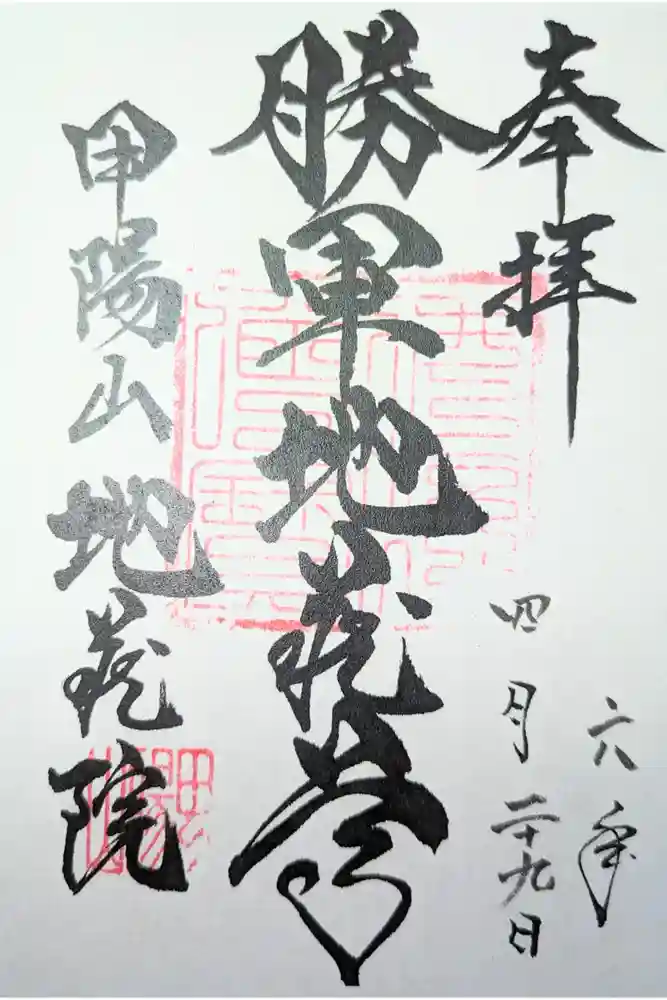 奉拝
六年
四月二十九日
勝軍地蔵尊
甲陽山地蔵院